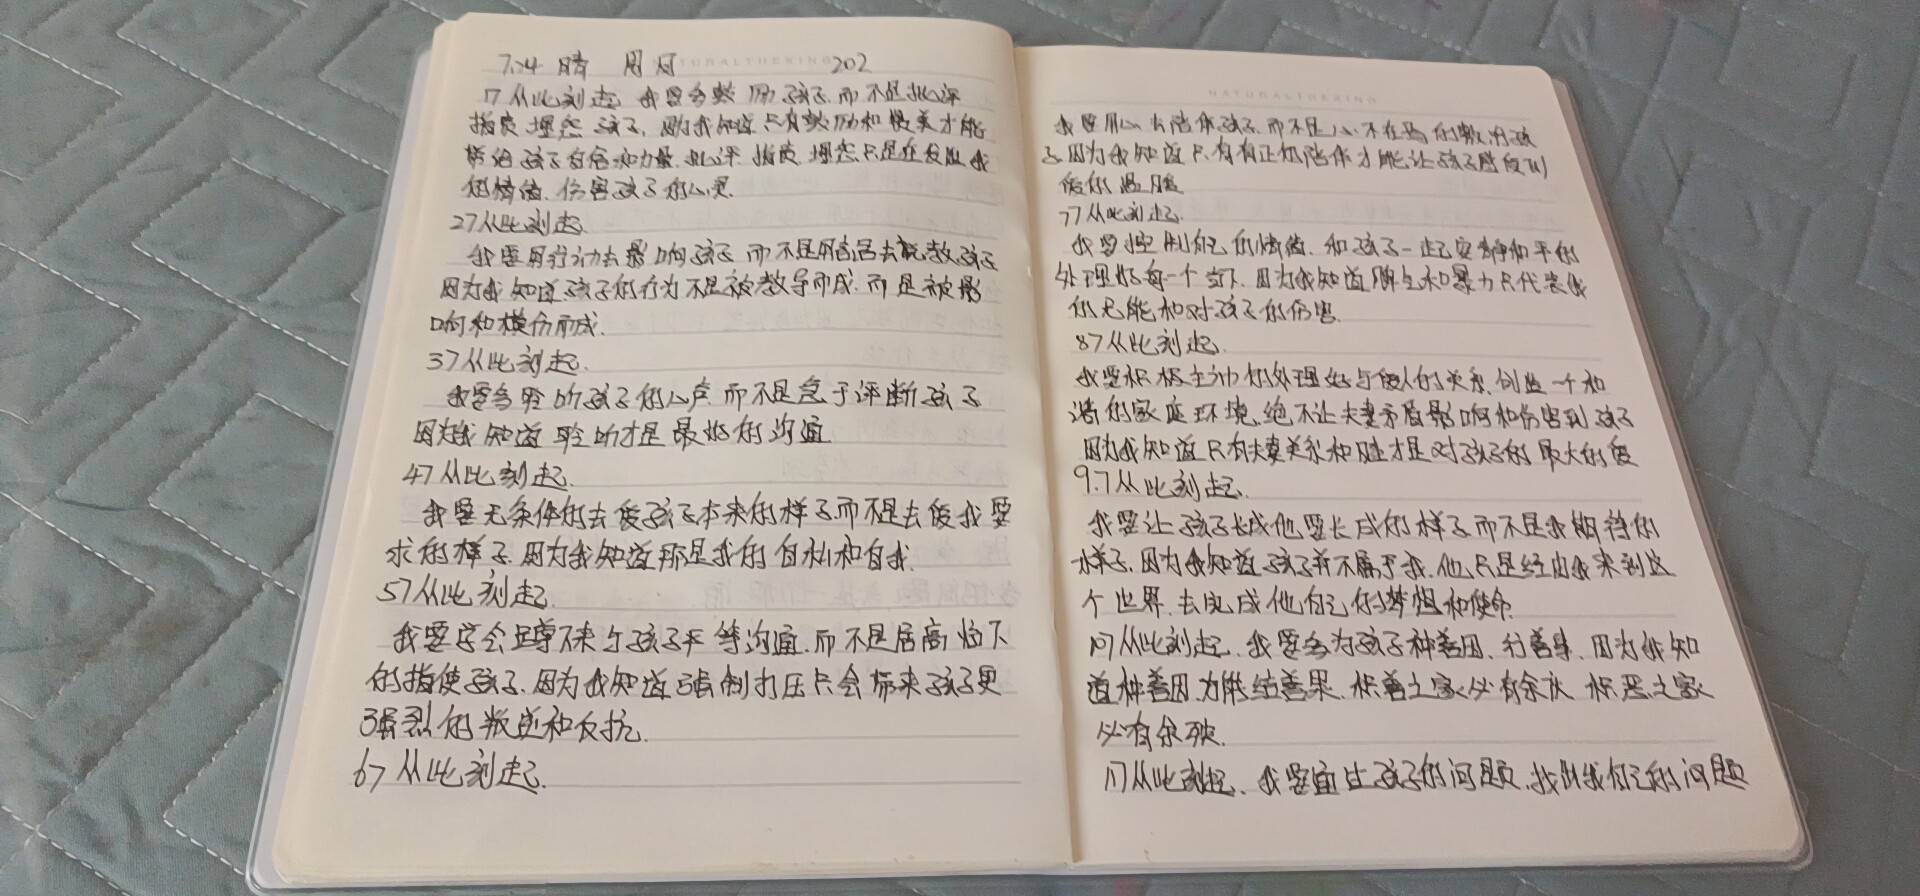 7.24 晴 周日 202
1>从此刻起 我要多鼓励孩子,而不是批评
指责埋怨孩子,因为我知道只有鼓励和赞美才能
带给孩子自信和力量,批评 指责 埋怨只是在发泄我
的情绪,伤害孩子的心灵.
2>从此刻起.
我要用行动去影响孩子 而不是用言语去说教孩子
因为我知道孩子的行为不是被教导而成,而是被影
响和模仿而成.
3>从此刻起.
我要多聆听孩子的心声 而不是急于评断孩子
因为我知道聆听才是最好的沟通
4>从此刻起.
我要无条件的去爱孩子本来的样子而不是去爱我要
求的样子,因为我知道那是我的自私和自我.
5>从此刻起.
我要学会蹲下来与孩子平等沟通,而不是居高临下
的指使孩子,因为我知道强制打压只会带来孩子更
强烈的叛逆和反抗.
6>从此刻起.
NATURALTHEKING
我要用心去陪伴孩子,而不是心不在焉的敷衍孩
子,因为我知道只有真正的陪伴才能让孩子感受到
爱的温暖
7>从此刻起.
我要控制自己的情绪,和孩子一起安静和平的
处理好每一个当下,因为我知道脾气和暴力只代表我
的无能和对孩子的伤害.
8>从此刻起.
我要积极主动的处理好与爱人的关系,创造一个和
谐的家庭环境,绝不让夫妻矛盾影响和伤害到孩子
因为我知道只有夫妻关系和睦才是对孩子的最大的爱
9.>从此刻起.
我要让孩子长成他要长成的样子而不是我期待的
样子,因为我知道孩子并不属于我,他只是经由我来到这
个世界,去完成他自己的梦想和使命
10>从此刻起,我要多为孩子种善因,行善事,因为我知
道种善因方能结善果,积善之家必有余庆 积恶之家
必有余殃.
11>从此刻起,我要通过孩子的问题,找出我自己的问题